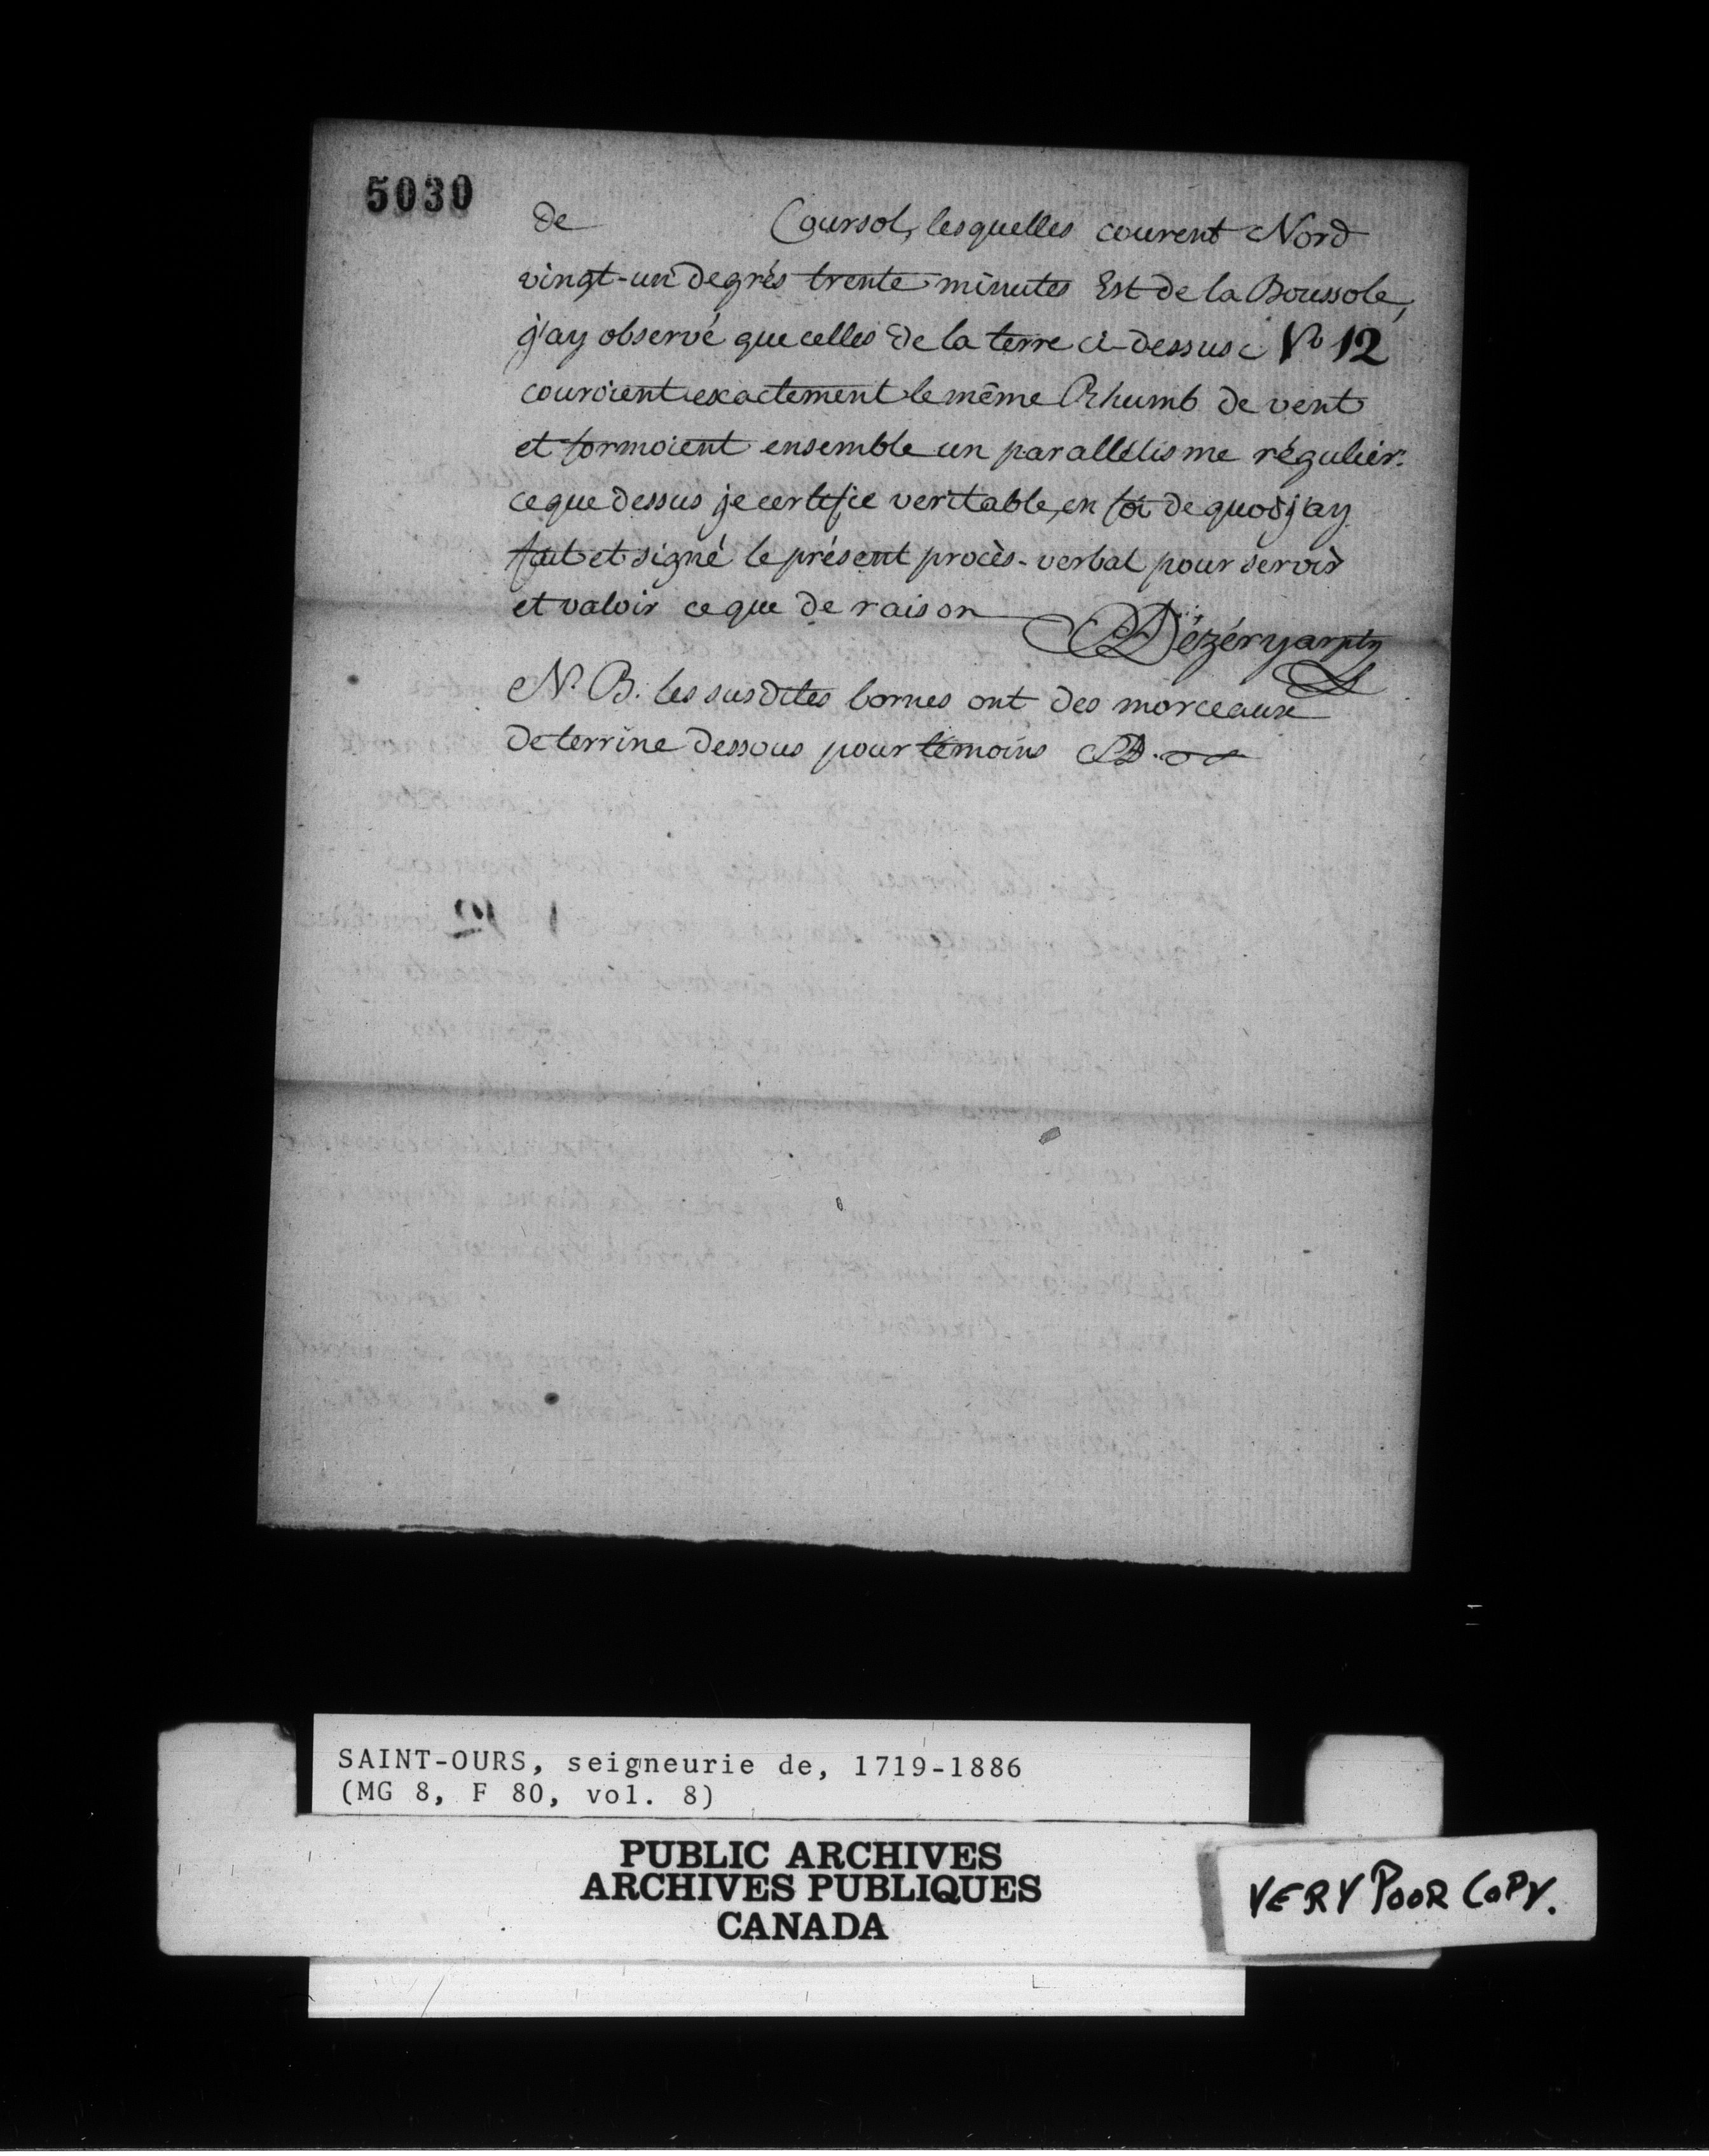 5030
de Coursol, lesquelles courent Nord
vingt-un degrés trente minutes Est de la Boussole,
j'ay observé que celles de la terre ci-dessus N° 12
couroient exactement le même Rhumb de vent
et formoient ensemble un parallélisme régulier.
ce que dessus je certifie veritable, en foi de quoi j'ay
fait et signé le présent procès-verbal pour servir
et valoir ce que de raison
Dézéry arptr
N. B. les susdites bornes ont des morceaux
de terrine dessous pour témoins PD.
SAINT-OURS, seigneurie de, 1719-1886
(MG 8, F 80, vol. 8)
PUBLIC ARCHIVES
ARCHIVES PUBLIQUES
CANADA
VERY POOR COPY.